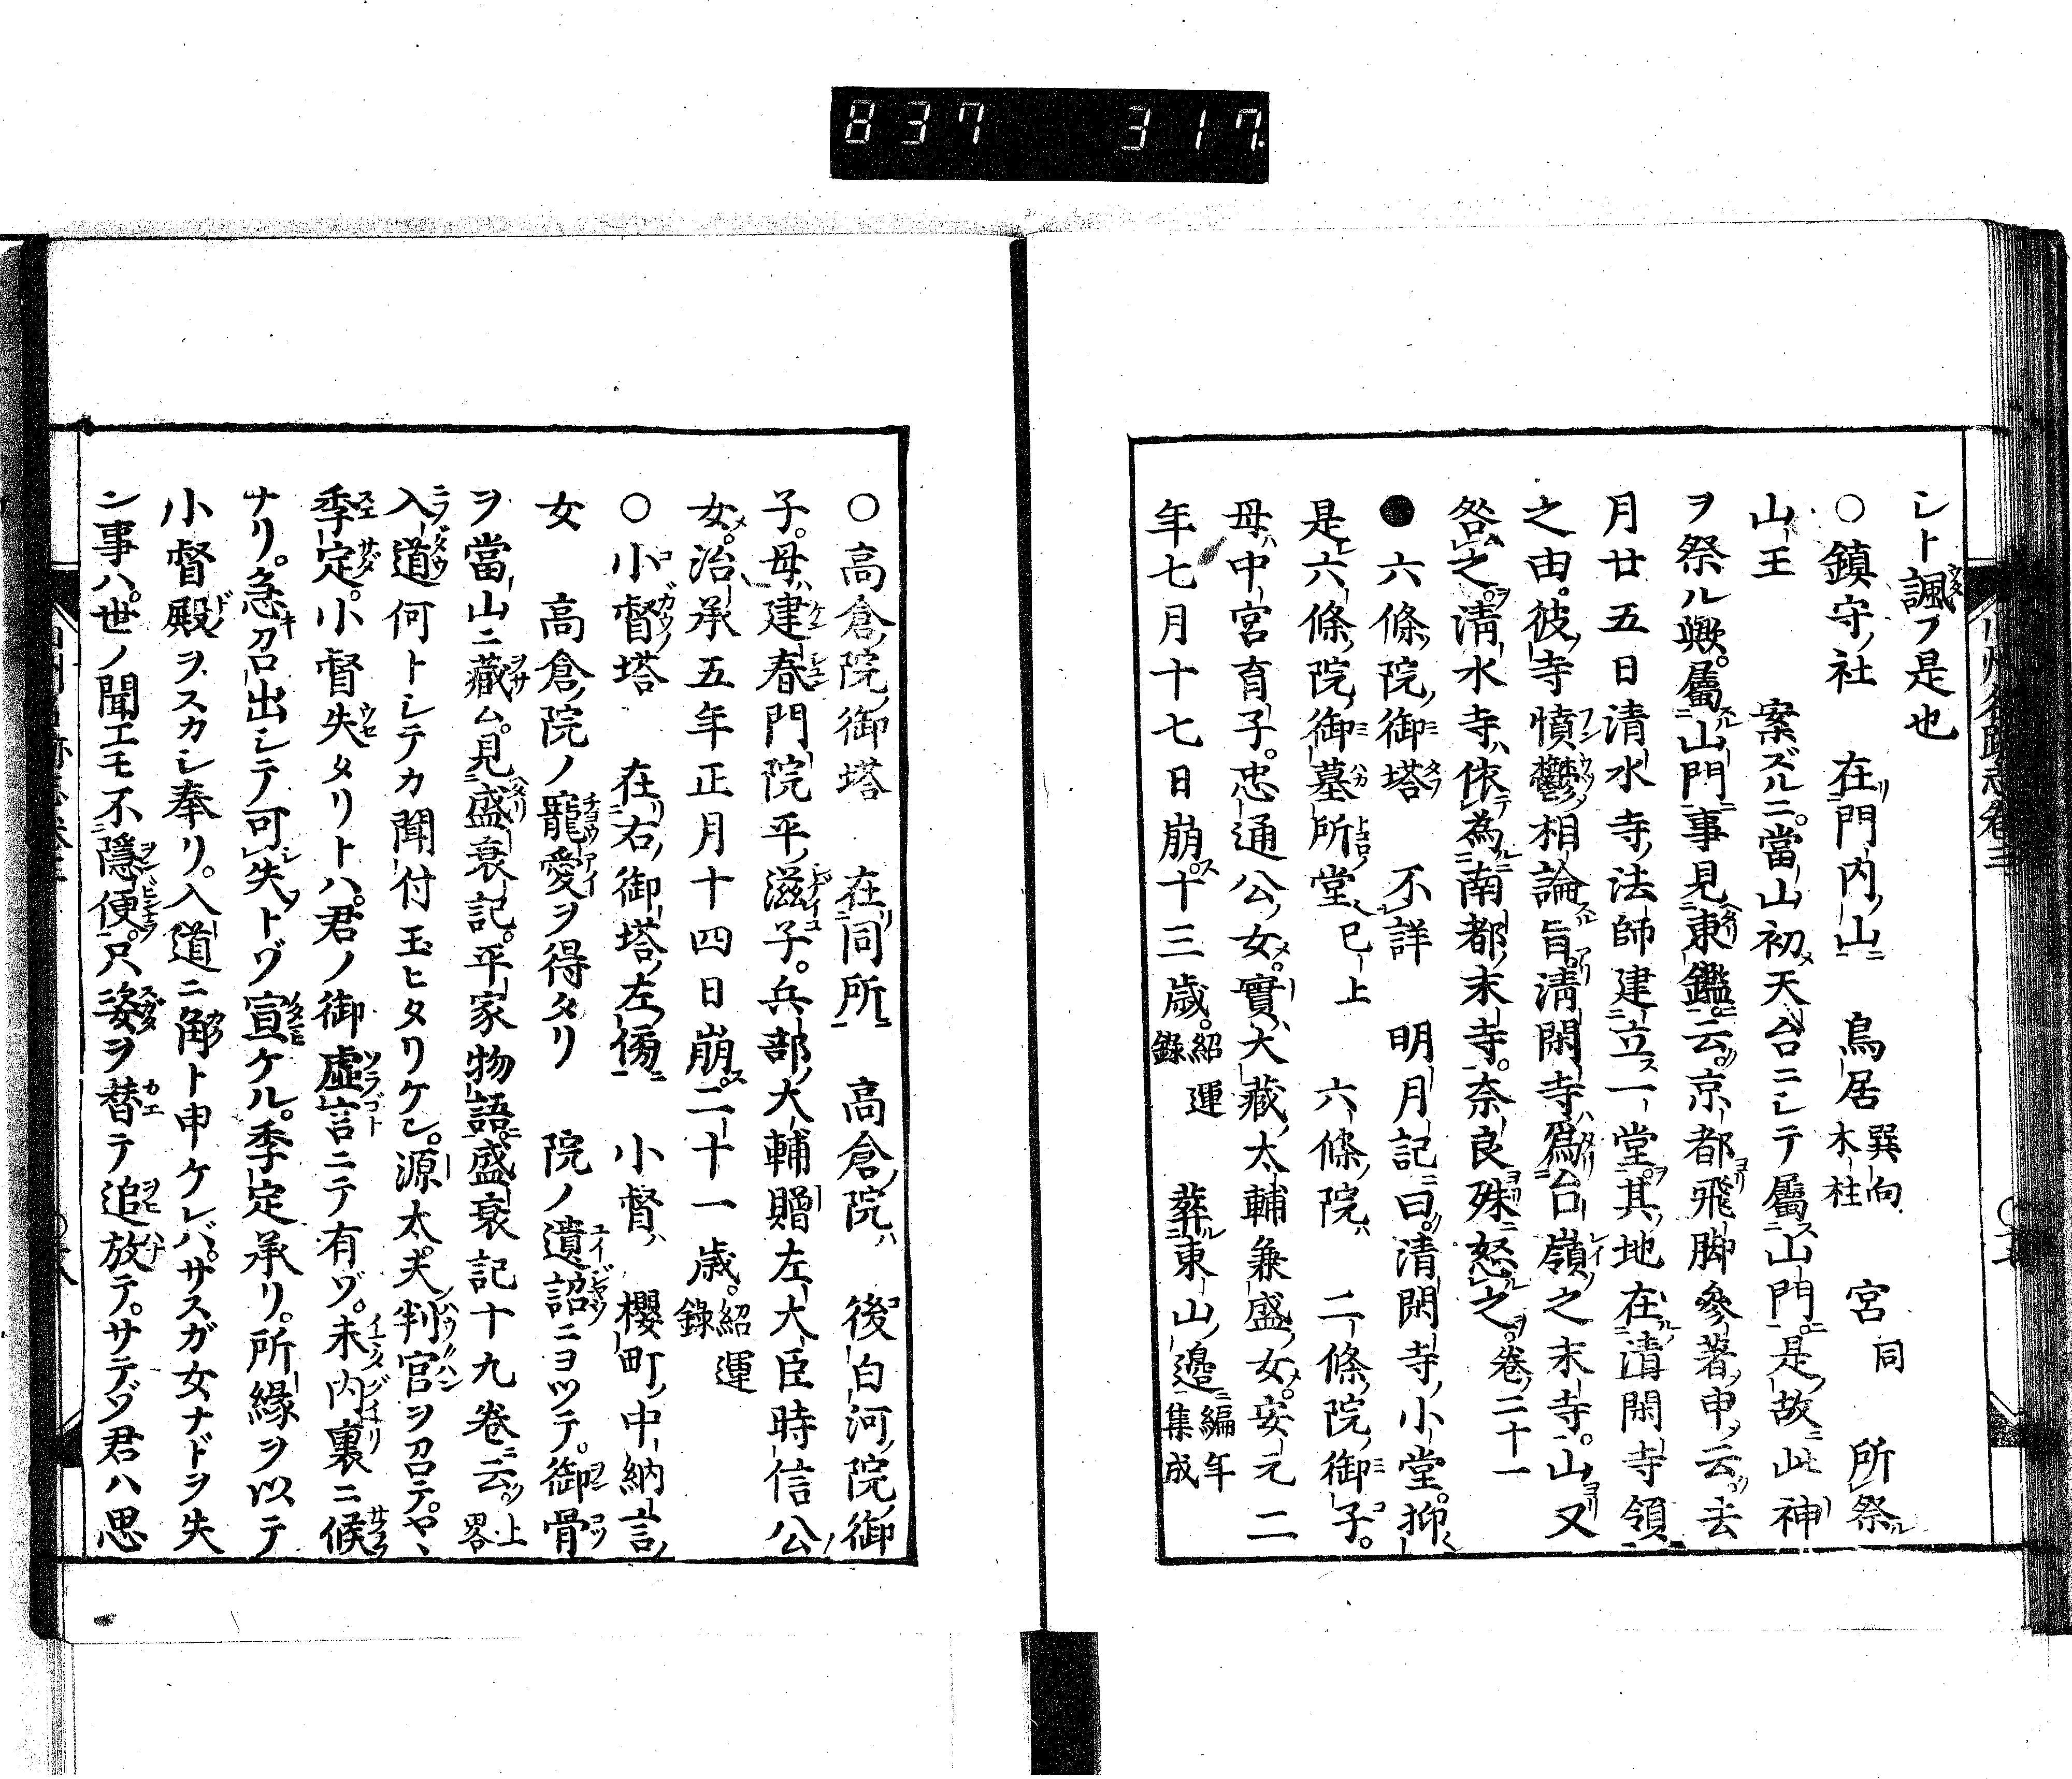 837 317
シト諷フ是也
○鎮守ノ社 在門内ノ山ニ 鳥居 巽向 木柱 宮 同 所祭ル
山王 案ズルニ。當山初メ天台ニシテ屬ス山門ニ。是故ニ此神
ヲ祭ル歟。屬スル山門ニ事見東鑑ニ。云。京都ヨリ飛脚參著申云。去
月廿五日清水寺ノ法師建立ス一堂ヲ。其地在清閑寺領ニ
之由。彼寺憤鬱相論旨。清閑寺ハ爲台嶺之末寺。山又
咎之ヲ。清水寺ハ依為南都ノ末寺。奈良殊ニ怒之ヲ。卷二十一
●六條ノ院ノ御塔 不詳 明月記ニ曰。清閑寺ノ小堂。抑
是六條ノ院ノ御墓所ノ堂 已上 六條ノ院ハ 二條ノ院ノ御子。
母ハ中宮育子。忠通公ノ女。實ハ大藏ノ太輔兼盛ノ女。安元二
年七月十七日崩ス。十三歳。紹運錄 葬東山ノ邊ニ 編年集成
○高倉ノ院ノ御塔 在同所ニ 高倉ノ院ハ 後白河ノ院ノ御
子。母ハ建春門院平ノ滋子。兵部ノ大輔贈左大臣時信公ノ
女。治承五年正月十四日崩ス。二十一歳。紹運錄
○小督ノ塔 在右ノ御塔ノ左ノ傍ニ 小督ハ 櫻町ノ中納言ノ
女 高倉ノ院ノ寵愛ヲ得タリ 院ノ遺詔ニヨツテ。御骨
ヲ當山ニ藏ム。見盛衰記。平家物語。盛衰記十九卷ニ云。上畧
入道何トシテカ聞付玉ヒタリケン。源太夫判官ヲ召テ。ヤヽ
季定。小督失タリトハ。君ノ御虚言ニテ有ゾ。未内裏ニ候
ナリ。急召出シテ可失トゾ宣ケル。季定承リ。所縁ヲ以テ
小督殿ヲスカシ奉リ。入道ニ角ト申ケレバ。サスガ女ナドヲ失
ン事ハ。世ノ聞エモ不隱便。只姿ヲ替テ追放テ。サテゾ君ハ思